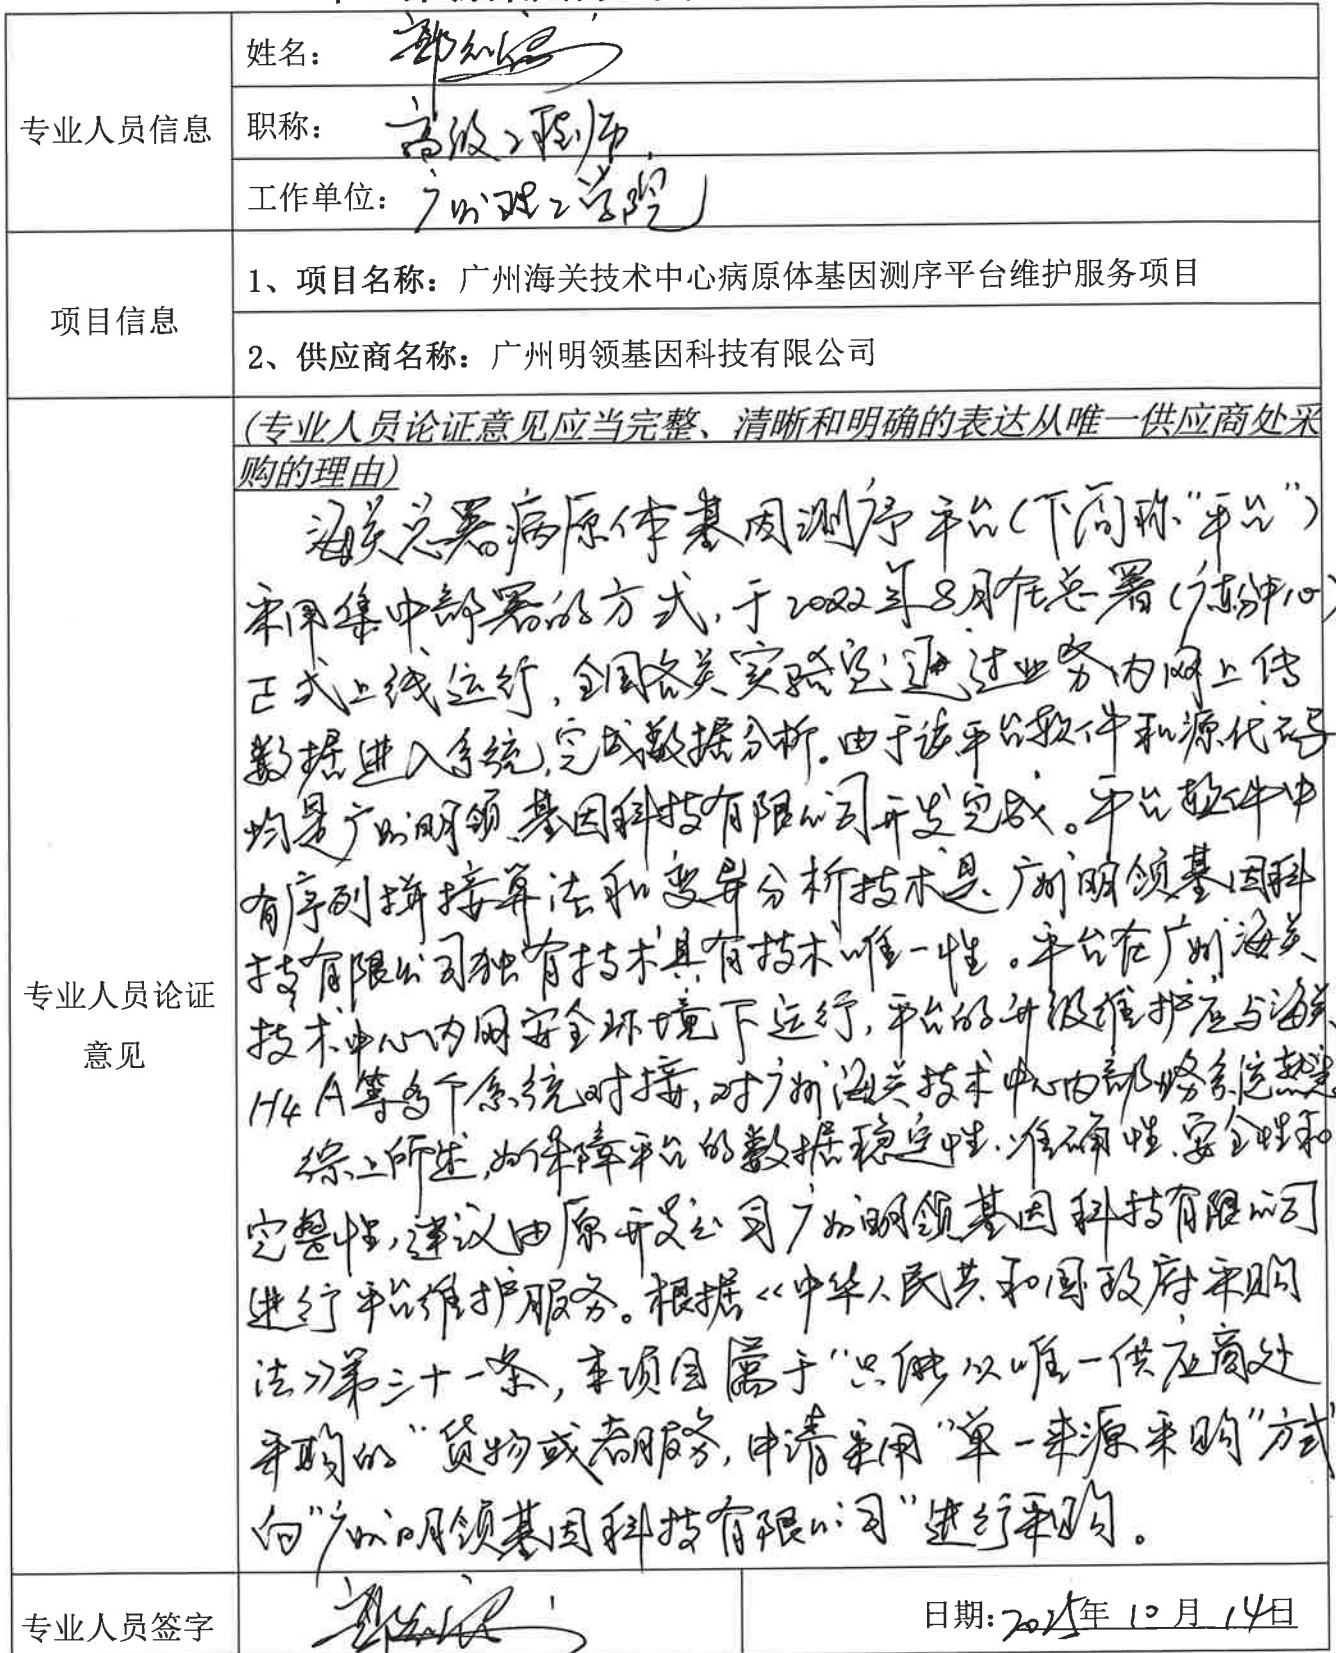 专业人员信息
姓名：
职称：高级工程师
工作单位：广州理工学院
项目信息
1、项目名称：广州海关技术中心病原体基因测序平台维护服务项目
2、供应商名称：广州明领基因科技有限公司
(专业人员论证意见应当完整、清晰和明确的表达从唯一供应商处采
购的理由)
海关总署病原体基因测序平台(下简称“平台”)
采用集中部署的方式，于2022年8月在总署(广东分中心)
正式上线运行，全国各关实验室通过业务内网上传
数据进入系统，完成数据分析。由于该平台软件和源代码
均是广州明领基因科技有限公司开发完成。平台软件中
有序列拼接算法和变异分析技术是广州明领基因科
技有限公司独有技术具有技术唯一性。平台在广州海关
技术中心内网安全环境下运行，平台的升级维护应与海关
H4A等多个系统对接，对广州海关技术中心内部业务系统熟悉
综上所述，为保障平台的数据稳定性、准确性、安全性和
完整性，建议由原开发公司广州明领基因科技有限公司
进行平台维护服务。根据《中华人民共和国政府采购
法》第三十一条，本项目属于“只能从唯一供应商处
采购的”货物或者服务，申请采用“单一来源采购”方式
向“广州明领基因科技有限公司”进行采购。
专业人员论证
意见
专业人员签字
日期：2025年10月14日